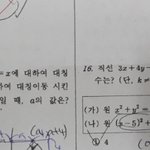 =x에 대하여 대칭
하여 대칭이동 시킨
일 때, a의 값은?
16. 직선 3x+4y-
수는? (단, k≠
(가) 원 x²+y²=
(나) 원 (x-5)²+
① 4